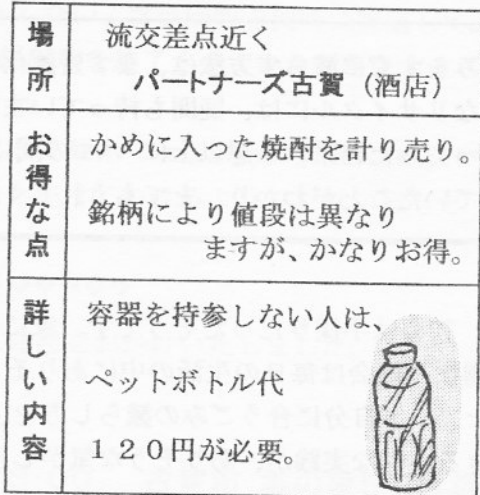 場所
流交差点近く
パートナーズ古賀（酒店）
お得な点
かめに入った焼酎を計り売り。
銘柄により値段は異なり
ますが、かなりお得。
詳しい内容
容器を持参しない人は、
ペットボトル代
１２０円が必要。